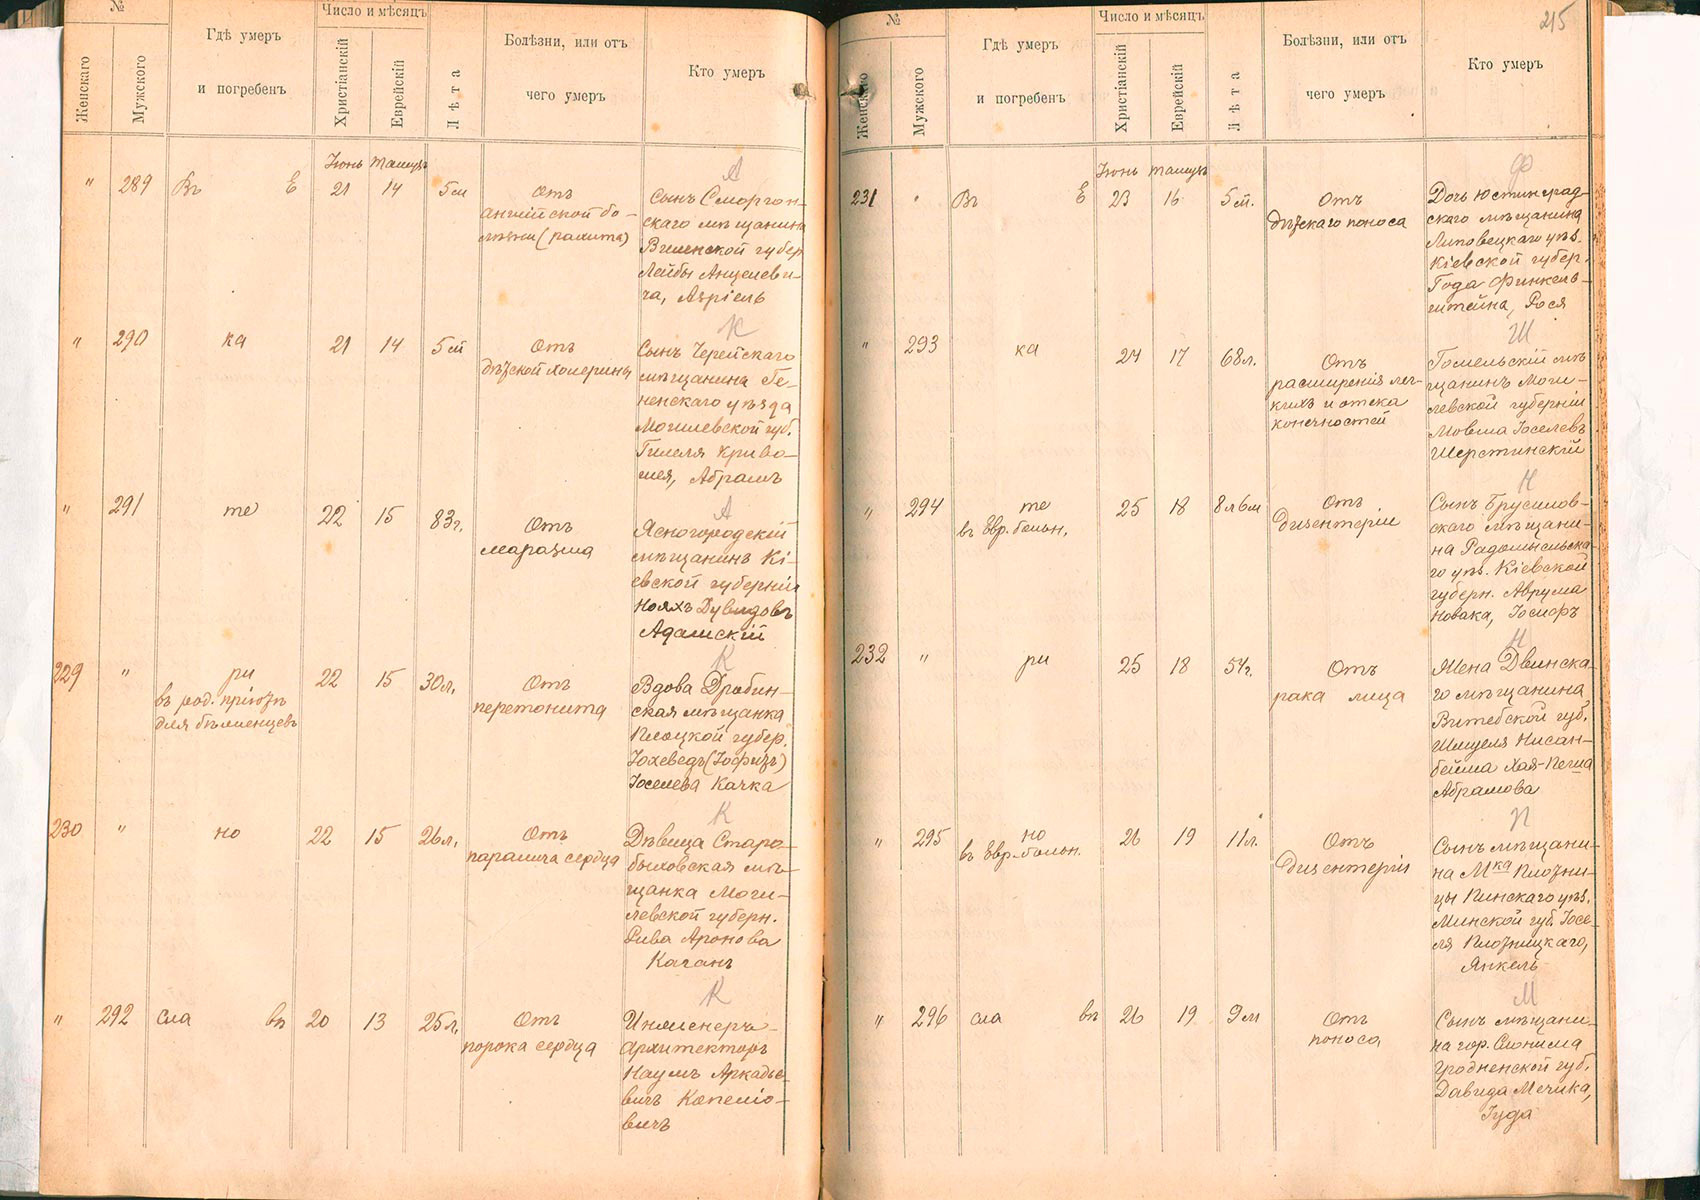 №
Число и мѣсяцъ
Женскаго
Мужского
Гдѣ умеръ
и погребенъ
Христіанскій
Еврейскій
Лѣта
Болѣзни, или отъ
чего умеръ
Кто умеръ
Іюнь Тамузъ
А
" 289 Въ Е 21 14 5 м
Отъ
англійской бо-
лѣзни (рахита)
Сынъ Сморгон-
скаго мѣщанина
Виленской губер.
Лейбы Анцелеви-
ча, Азріель
К
" 290 ка 21 14 5 м
Отъ
дѣтской холерины
Сынъ Черейскаго
мѣщанина Се-
ненскаго уѣзда
Могилевской губ.
Гилеля Криво-
шея, Абрамъ
А
" 291 те 22 15 83 г.
Отъ
маразма
Ясногородскій
мѣщанинъ Кі-
евской губерніи
Нояхъ Дувидовъ
Адамскій
К
229 " ри 22 15 30 л.
въ род. пріютѣ
для бѣженцевъ
Отъ
перетонита
Вдова Дробин-
ская мѣщанка
Плоцкой губер.
Іохеведъ
Іоселева Качка
К
230 " но 22 15 26 л.
Отъ
паралича сердца
Дѣвица Старо-
быховская мѣ-
щанка Моги-
левской губерн.
Рива Аронова
Каганъ
К
" 292 сла въ 20 13 25 л.
Отъ
порока сердца
Инженеръ-
Архитекторъ
Наумъ Аркадье-
вичъ Капелио-
вичъ
215
№
Число и мѣсяцъ
Женскаго
Мужского
Гдѣ умеръ
и погребенъ
Христіанскій
Еврейскій
Лѣта
Болѣзни, или отъ
чего умеръ
Кто умеръ
Іюнь Тамузъ
Ф
231 " Въ Е 23 16 5 м.
Отъ
дѣтскаго поноса
Дочь Юстинград-
скаго мѣщанина
Липовецкаго уѣз.
Кіевской губер.
Года Финкель-
штейна, Рося
Ш
" 293 ка 24 17 68 л.
Отъ
расширенія лег-
кихъ и отека
конечностей
Гомельскій мѣ-
щанинъ Моги-
левской губерніи
Мовша Іоселевъ
Шерстинскій
Н
" 294 те 25 18 8 л 6 м
въ Евр. больн.
Отъ
дизентеріи
Сынъ Брусилов-
скаго мѣщани-
на Радомысльска-
го уѣз. Кіевской
губерн. Аврума
Новака, Іосифъ
Н
232 " ри 25 18 54 г.
Отъ
рака лица
Жена Двинска-
го мѣщанина
Витебской губ.
Шмуеля Нисан-
бейма Хая-Пеша
Абрамова
П
" 295 но 26 19 11 л.
въ Евр. больн.
Отъ
дизентеріи
Сынъ мѣщани-
на Мка Плотни-
цы Пинскаго уѣз.
Минской губ. Іосе-
ля Плотницкаго,
Янкель
М
" 296 сла въ 26 19 9 м
Отъ
поноса
Сынъ мѣщани-
на гор. Слонима
Гродненской губ.
Давида Мечика,
Іуда